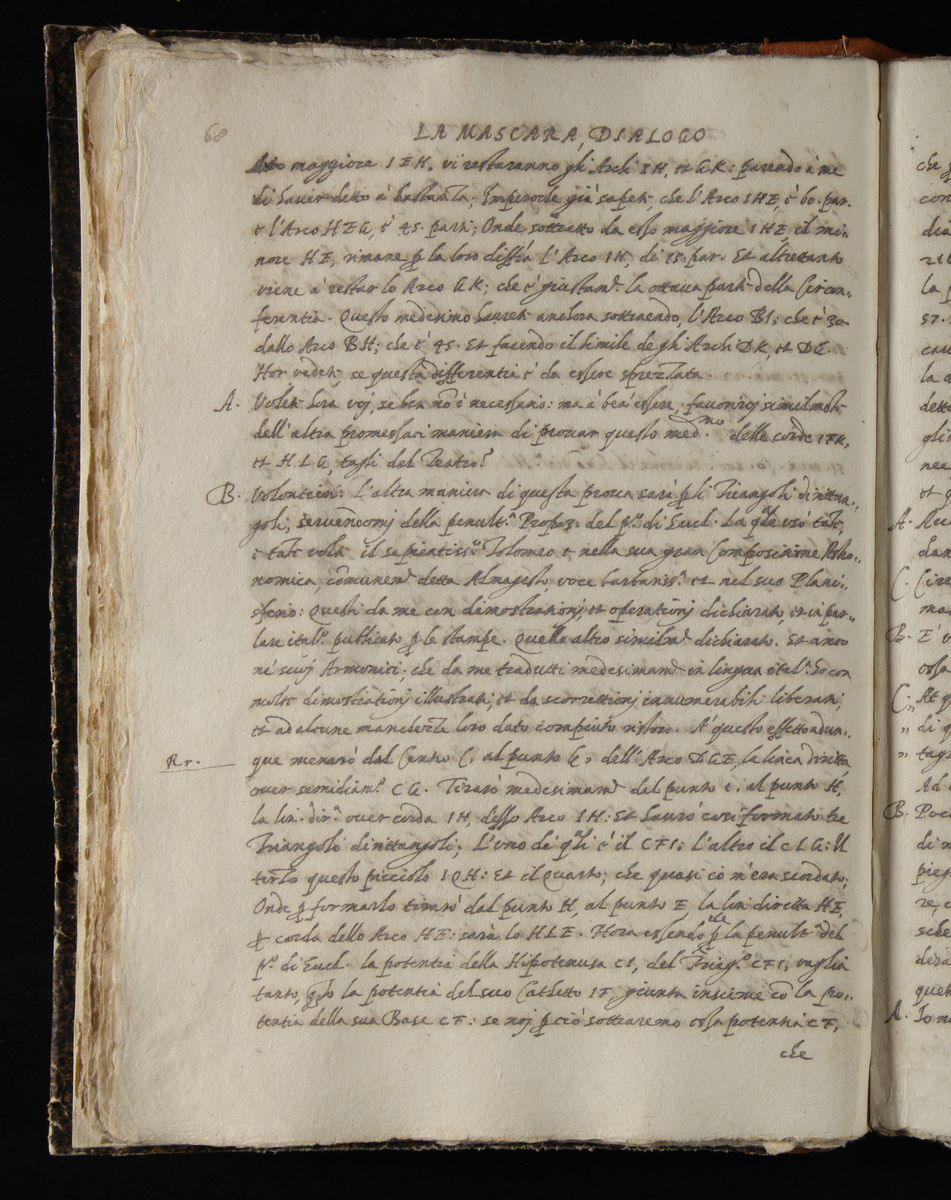 68
LA MASCARA, DIALOGO
Arco maggiore IEH, vi restaranno gli Archi IH, et GK: parendo à me
di haver detto à bastanza; Imperoche già sapete, che l'Arco IHE, è 60. par.
e l'Arco HEG, è 45. parti; Onde sottratto da esso maggiore IHE, il mi-
nore HE, rimane ꝑ la loro diffña l'Arco IH, di 15. par. Et altrettanto
viene à restar lo Arco GK; che è giustamẽ. la ottava parte della Circon-
ferentia. Questo medesimo havrete anchora sottraendo, l'Arco BI; che è 30
dallo Arco BH; che è 45. Et facendo il simile de gli Archi DK, et DG.
Hor vedete, se questa differentia è da essere sprezzata.
A. Volete hora voj, se ben nõ è necessario: ma à ben essere, favorirej similmẽte
dell'altra promessaci maniera di provar questo med.mo delle corde IFK,
et HLG, tagli del Teatro?
B. Volontieri: L'altra maniera di questa prova sarà ꝑ li Triangoli dirittan-
goli, servendomj della penult.a Propoz. del pº. di Eucl. La q̃le usò tãte,
e tãte volte il sapientiss.o Tolomeo e nella sua gran Composicione Astro-
nomica, comunemẽ. detta Almagesto, voce barbariss.a et nel suo Plani-
sferio: Questi da me con dimostrationj, et operationj dichiarato, et in par-
lare ital.o publicato ꝑ le stampe. Quello altro similmẽ. dichiarato. Et anco
ne' suoj Armonici; che da me tradutti medesimamẽ. in lingua ital.a So con
molte dimostrationj illustrati, et da scorrettionj innumerabili liberati,
et ad alcune mancheza loro dato compiuto ristoro. A' questo effetto adun-
Rr. que menarò dal Centro C, al punto G, dell'Arco DGE, la linea diritta,
over semidiam.o CG. Tirarò medesimamẽ. dal punto I, al punto H,
la lin. dir.a over corda IH, dello Arco IH: Et havrò cosi formato tre
Triangoli dirittangoli; L'uno de q̃li è il CFI: L'altro il CLG: Il
terzo questo picciolo IQH: Et il Quarto; che quasi cõ m'era scordato;
Onde ꝑ formarlo tirarò dal punto H, al punto E, la lin. diretta HE,
ꝑ corda dello Arco HE: sarà lo HLE. Hora essendo che ꝑ la penult.a del
pº. di Eucl. la potentia della Hipotenusa CI, del Triãg.o CFI, vaglia
tanto, q̃to la potentia del suo Cathetto IF, giunta insieme cõ la po-
tentia della sua Base CF: se noj ꝑ ciò sottraremo essa potentia CF,
che